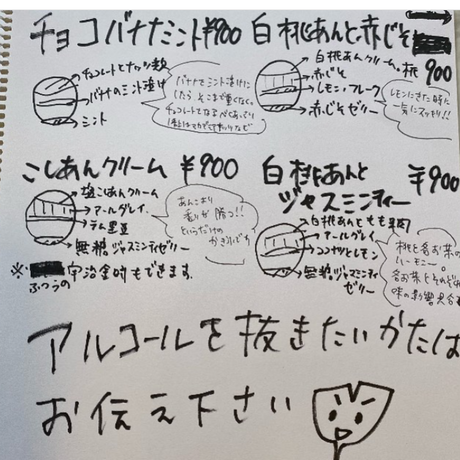 チョコバナナミント¥900
チョコレートとナッツ類
バナナのミント漬け
ミント
バナナをミント漬けに
したら
白桃あんと赤じそ
900
白桃あんクリーム、桃
赤じそ
レモンフレーク
赤じそゼリー
レモンにきた時に
一気にスッキリ!!
こしあんクリーム ¥900
塩こしあんクリーム
アールグレイ
無糖ジャスミンティゼリー
あんこより
香りが勝つ!!
というだけの
かき氷です
※ ふつうの宇治金時もできます
白桃あんと
ジャスミンティー
¥900
白桃あんともも果肉
アールグレイ
ココナッツとレモン
無糖ジャスミンティ
ゼリー
桃と各お茶の
ハーモニー。
各お茶とそれぞれ
味の影響具合
アルコールを抜きたいかたは
お伝え下さい